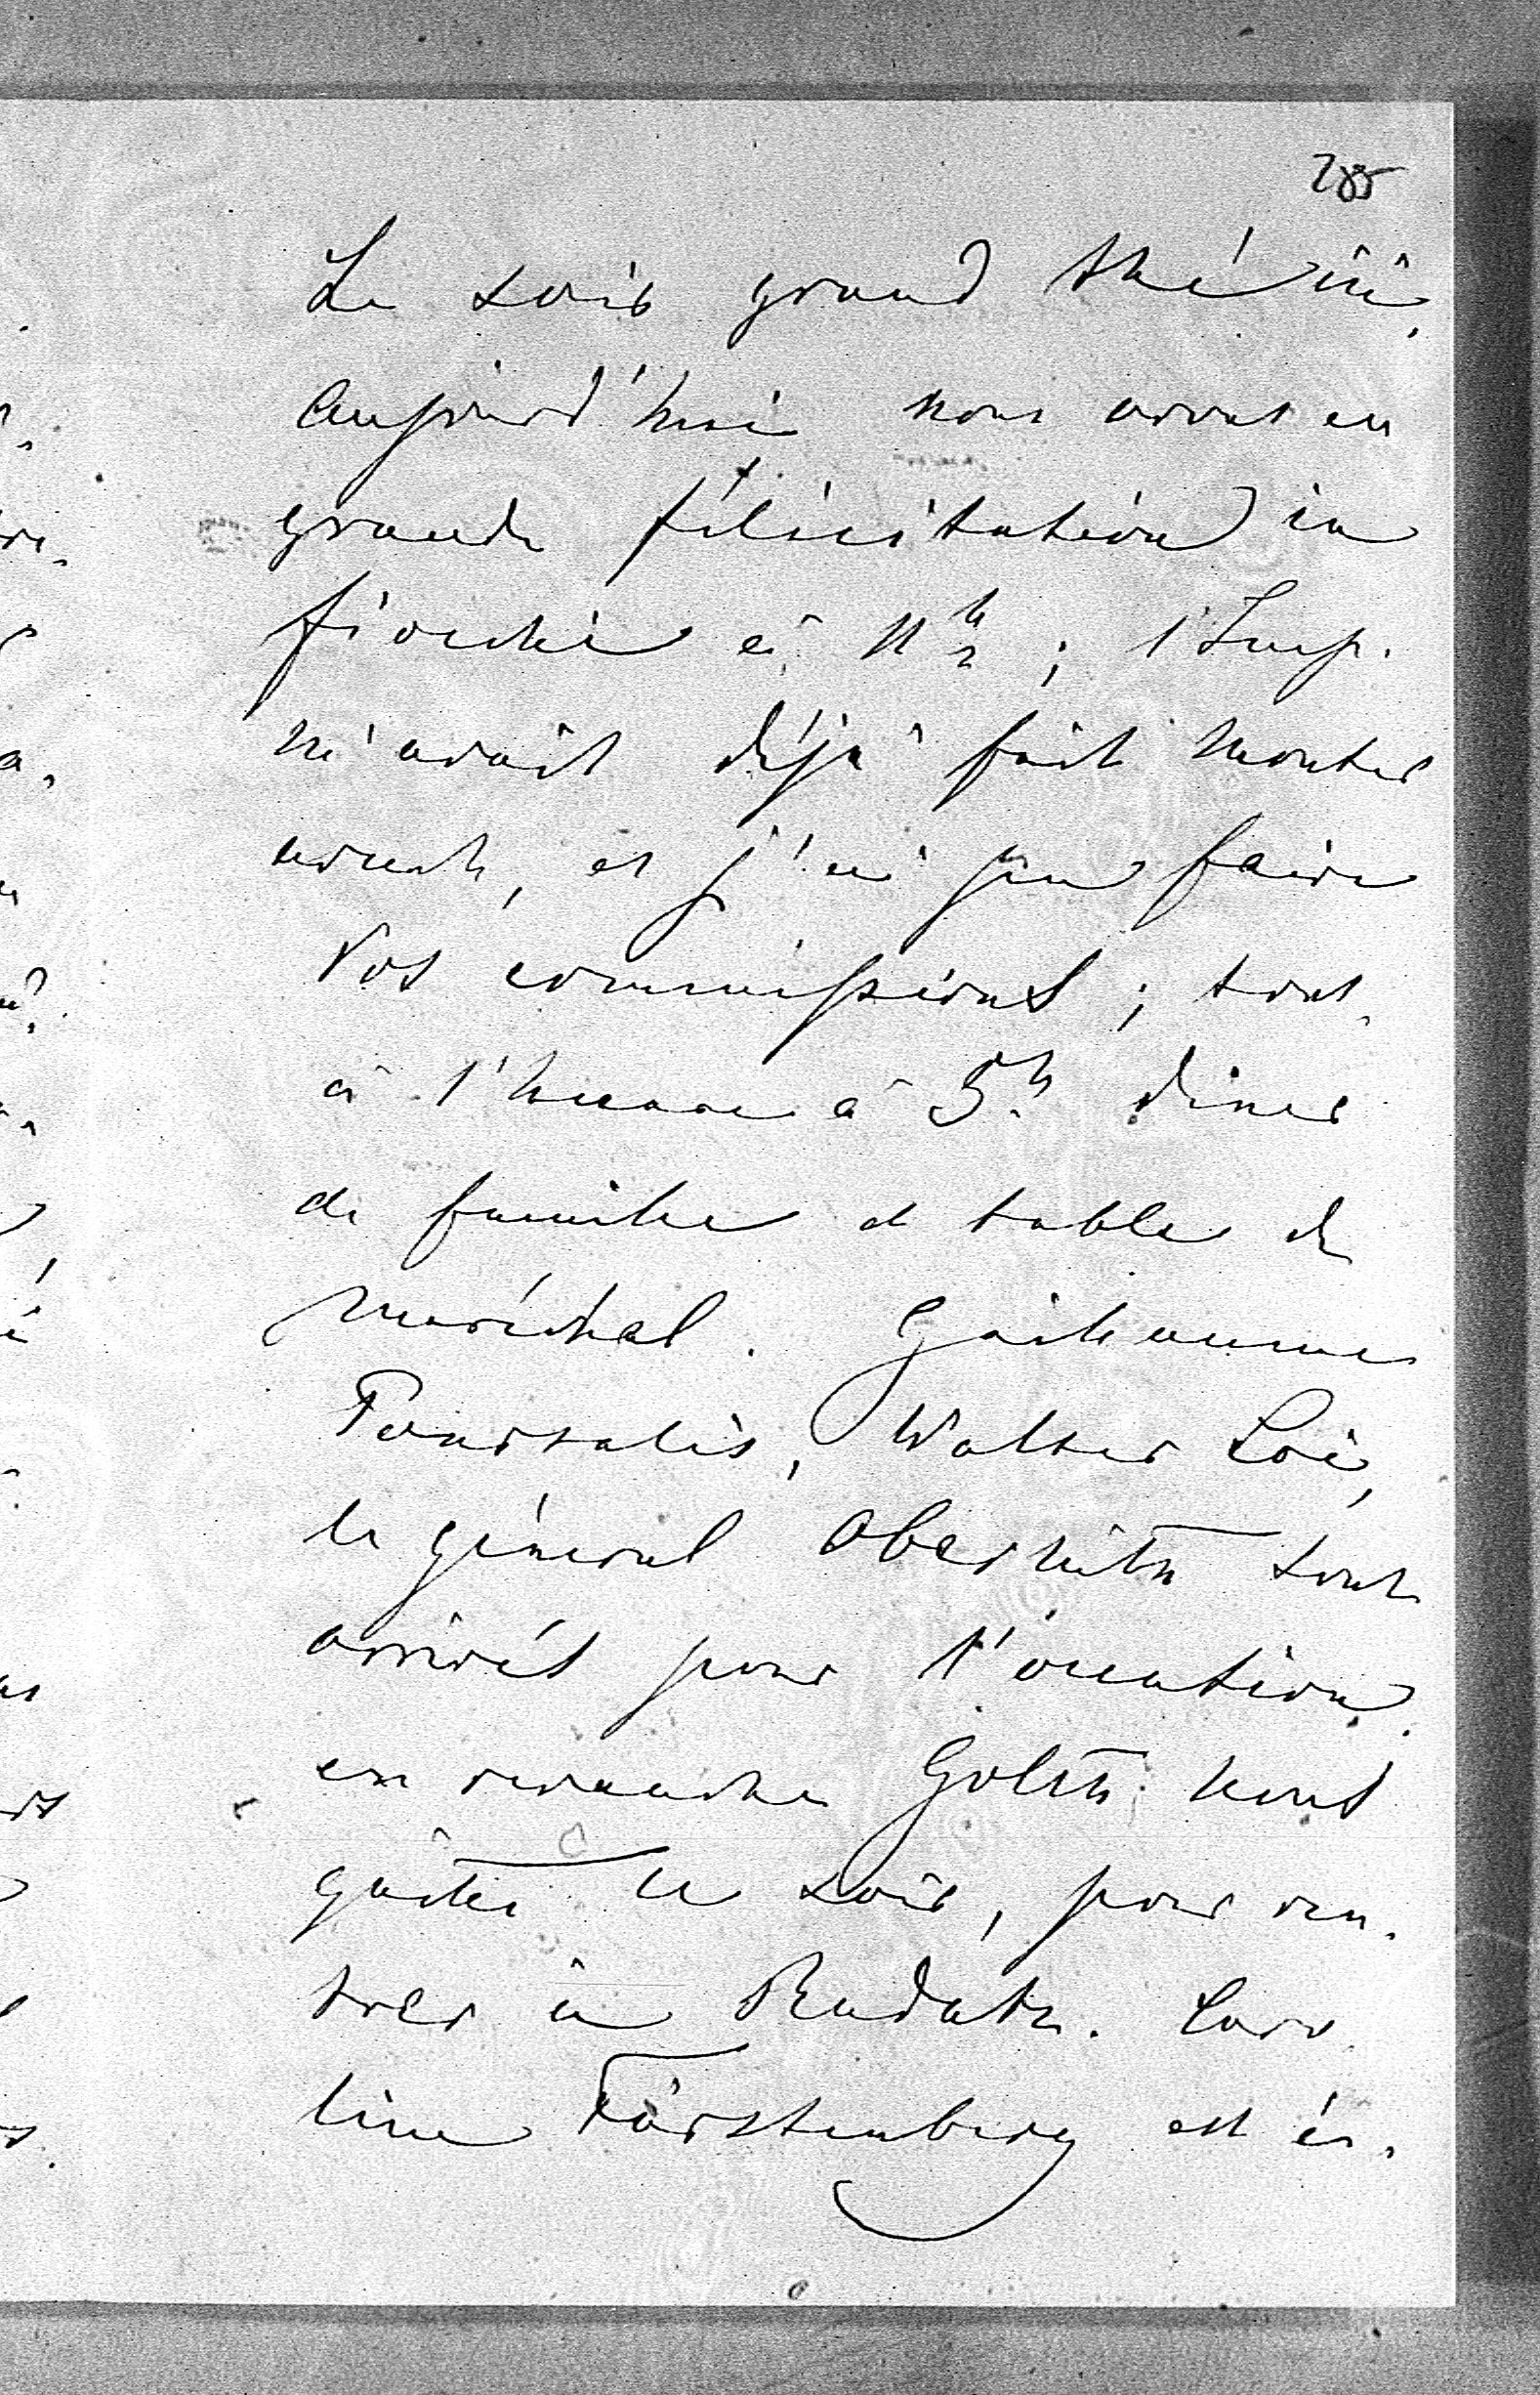 285
Le soir grand thé ici,
Aujourd'hui nous avons eu
grande félicitation in
fiocchi à 11 h ; l'Imp.
m'avait déjà fait monter
avant, et j'ai pu faire
Vos commissions ; tout
à l'heure à 5 h diner
de famille et table de
maréchal. Guillaume
Pourtalès, Walter Loë,
le général Obernitz sont
arrivés pour l'occasion.
en revanche Goltz nous
quitte ce soir, pour ren-
trer à . Caro
line Fürstenberg est